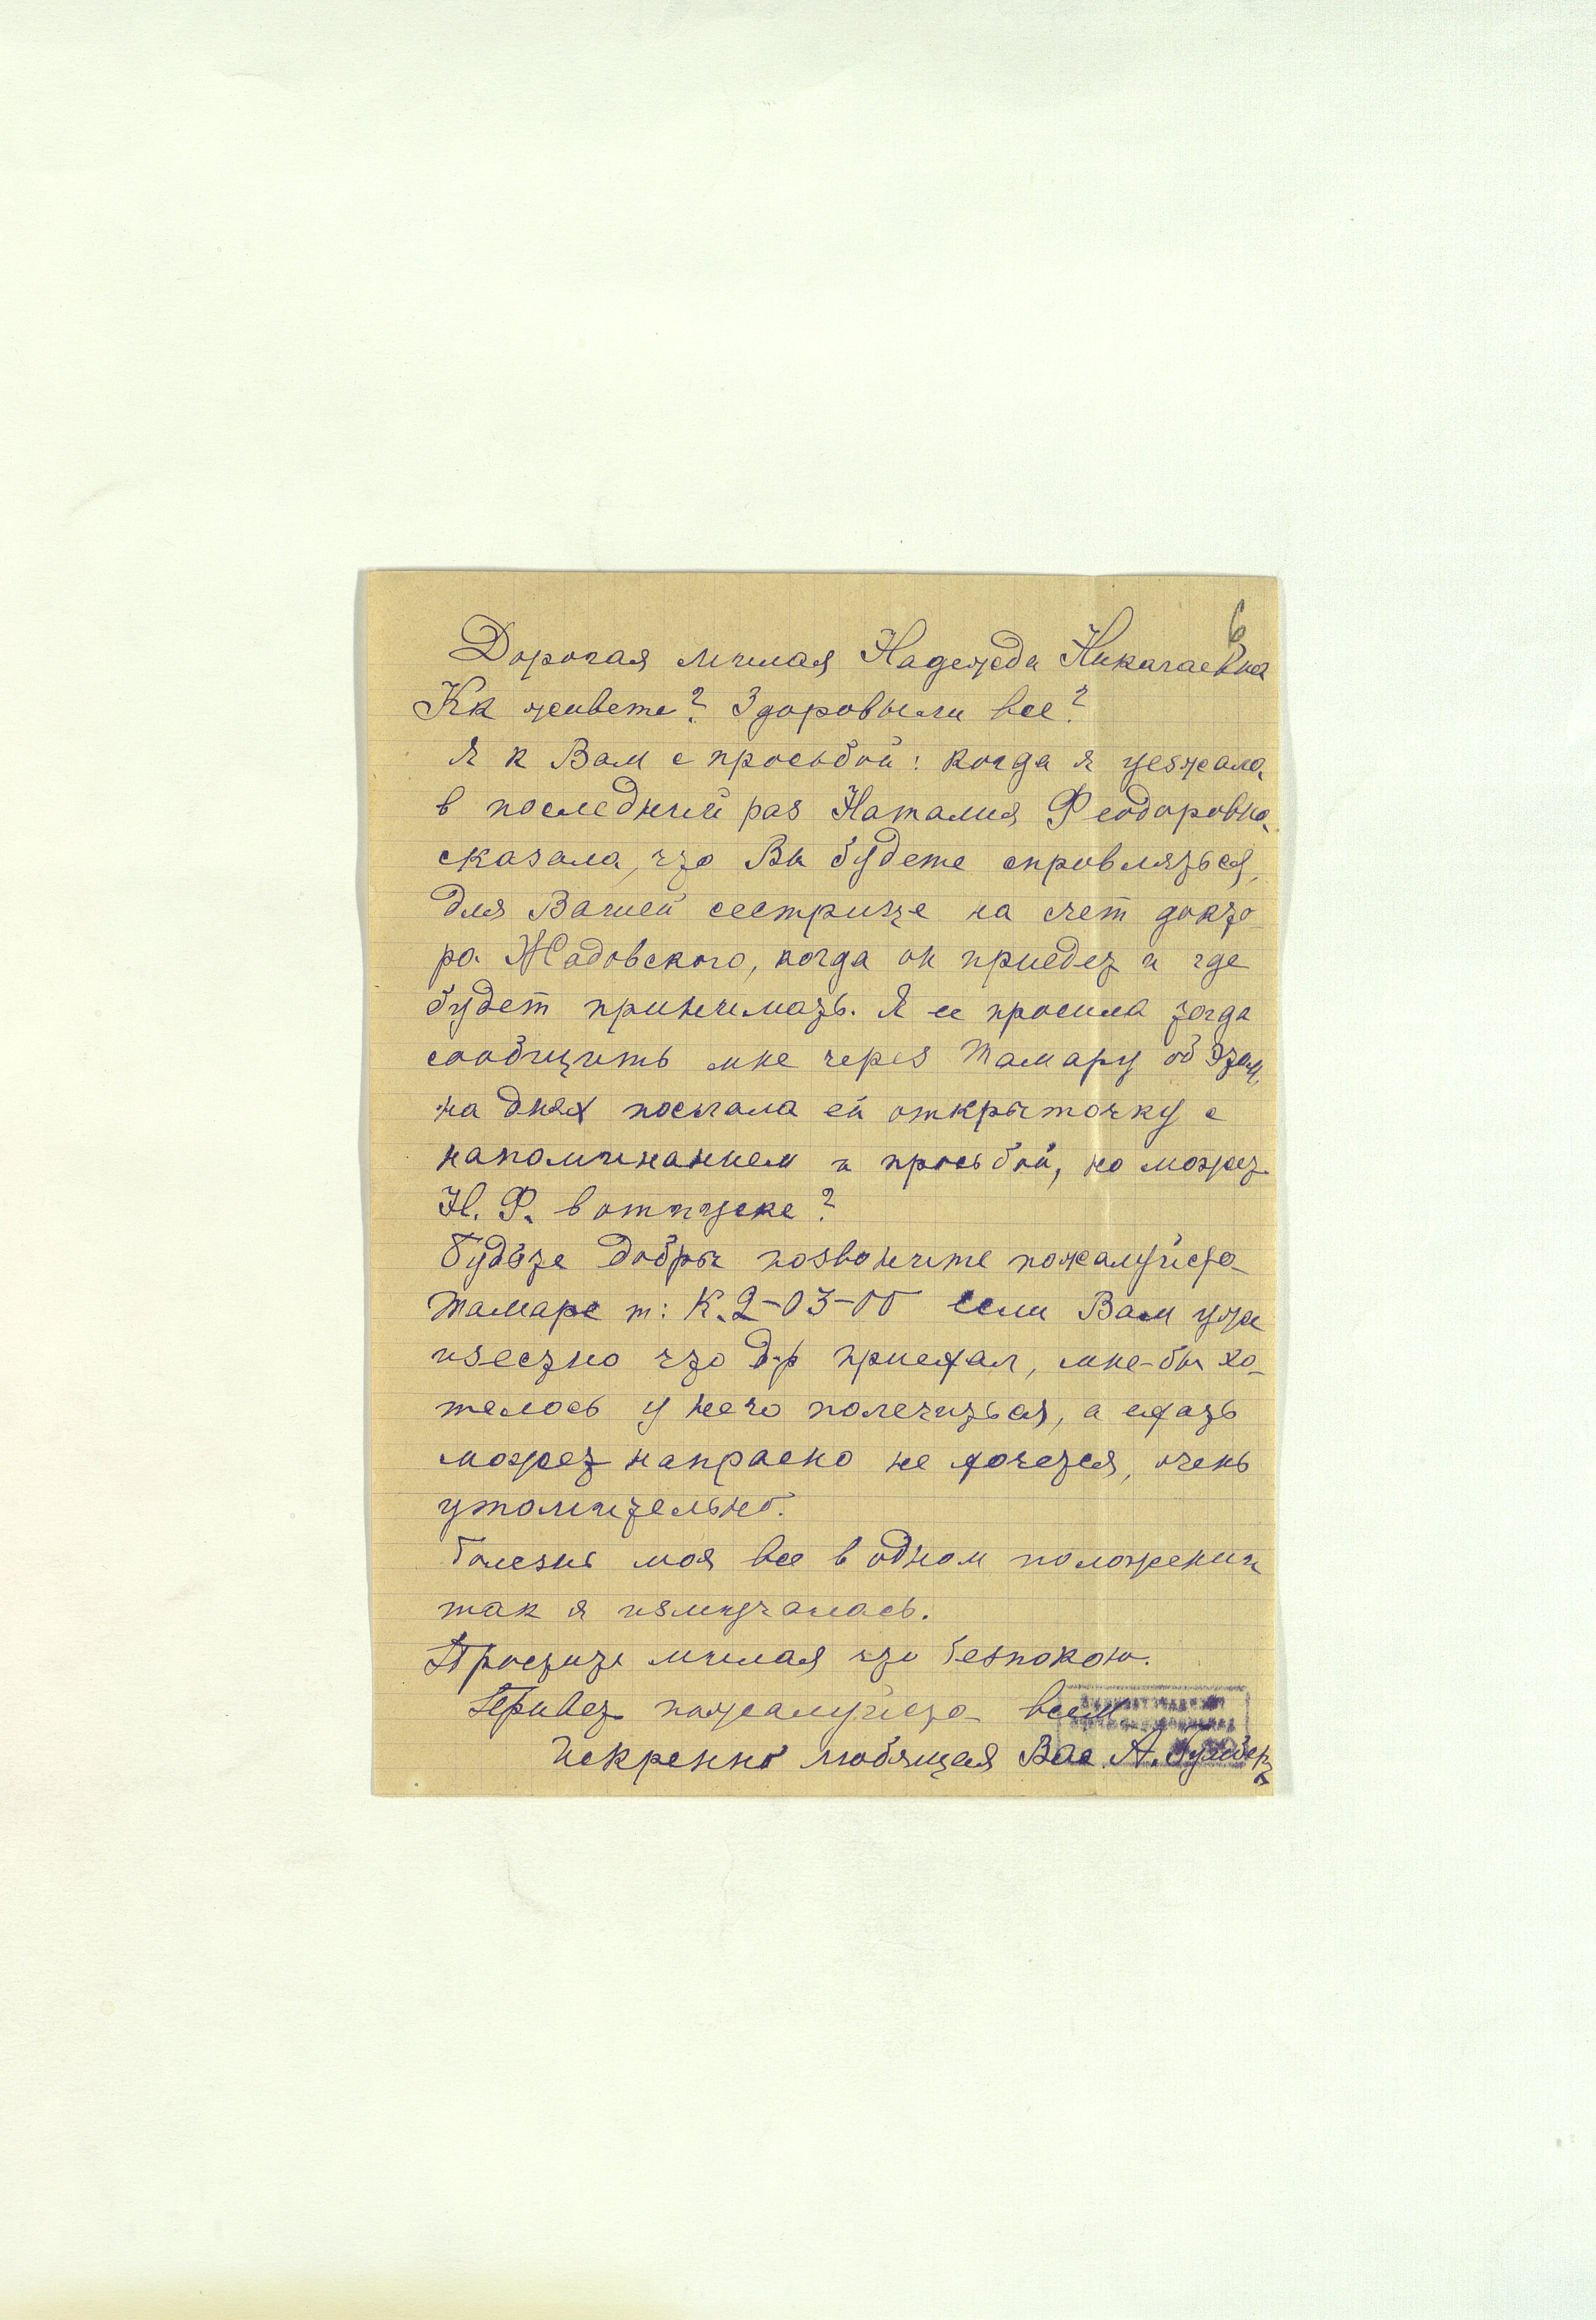 6
Дорогая милая Надежда Николаевна
Кк живете? Здоровы ли все?
Я к Вам с просьбой: когда я уезжала,
в последний раз Наталия Феодоровна
сказала, что Вы будете справляться,
для Вашей сестрице на счет докто-
ра Жадовского, когда он приедет и где
будет принимать. Я ее просила тогда
сообщить мне через Тамару об этом,
на днях посылала ей открыточку с
напоминанием и просьбой, но может
Н. Ф. в отпуске?
Будьте добры позвоните пожалуйста
Тамаре т: К.2-03-00 если Вам уже
извесно что д-р приехал, мне-бы хо-
телось у него полечиться, а ехать
может напрасно не хочется, очень
утомительно.
Болезнь моя все в одном положении
так я измучалась.
Простите милая что безпокою.
Привет пожалуйста всем
Искренно любящая Вас А.